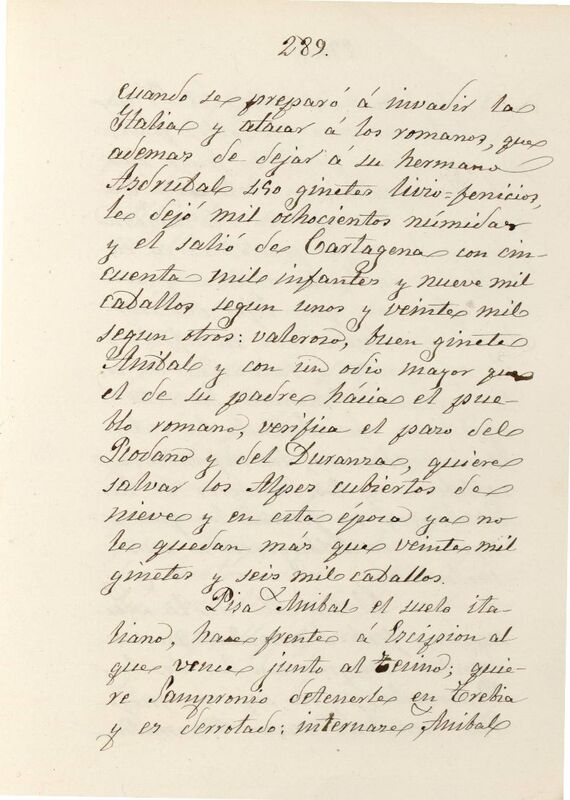 289.
cuando se preparó á invadir la
Italia y atacar á los romanos, que
ademas de dejar á su hermano
Asdrubal 450 ginetes livio=fenicios,
le dejó mil ochocientos númidas
y el salió de Cartagena con cin-
cuenta mil infantes y nueve mil
caballos segun unos y veinte mil
segun otros: valeroso, buen ginete
Anibal y con un odio mayor que
el de su padre hácia el pue-
blo romano, verifica el paso del
Rodano y del Duranza, quiere
salvar los Alpes cubiertos de
nieve y en esta época ya no
le quedan más que veinte mil
ginetes y seis mil caballos.
Pisa Anibal el suelo ita-
liano, hace frente á Escipsion al
que vence junto al Tesino; quie-
re Sampronio detenerle en Trebia
y es derrotado; internase Anibal